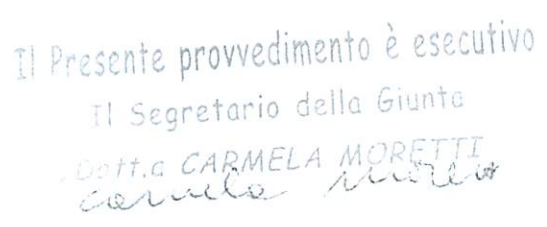 Il Presente provvedimento è esecutivo
Il Segretario della Giunta
Dott.a CARMELA MORETTI
Carmela Moretti